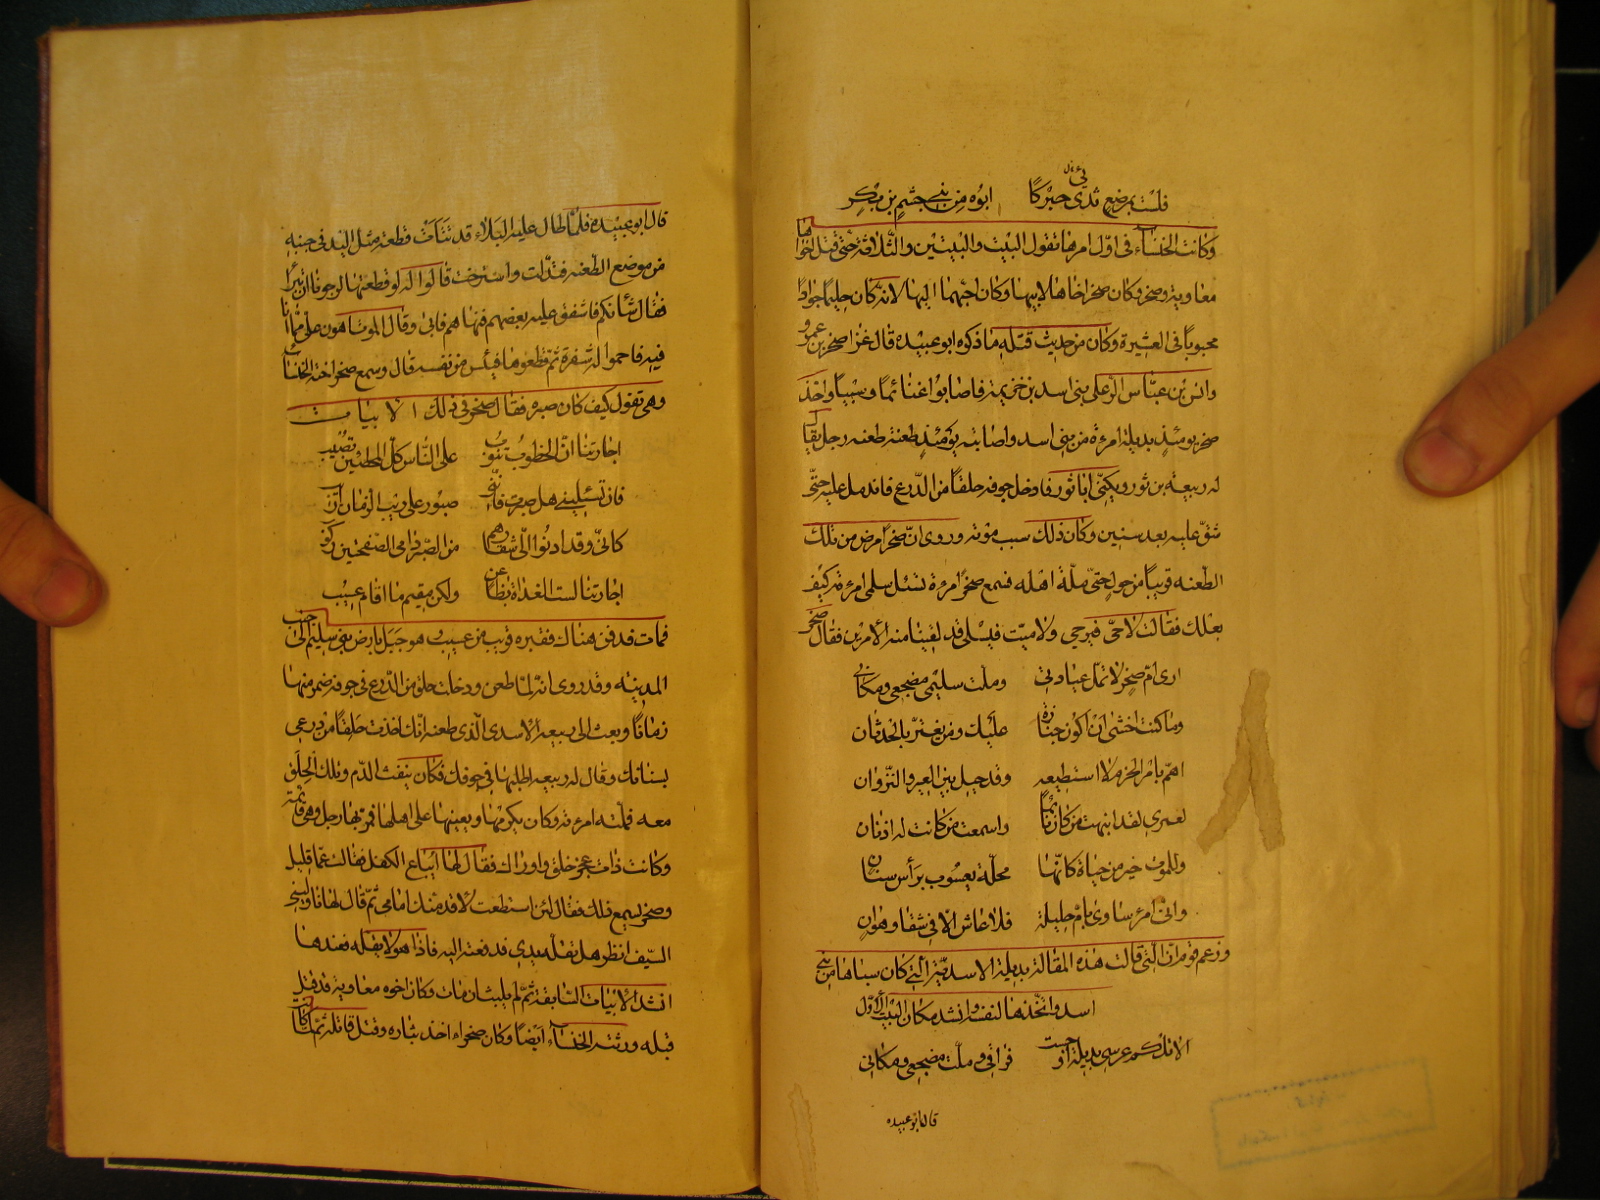 فلست بمرضع ثدى حبركا ابوه من بنى جشم بن بكر
وكانت الخنساء فى اوّل امرها تقول البيت والبيتين والثلاثة حتّى قتل اخواها
معاوية وصخر وكان صخر اخاها لابيها وكان احبّهما اليها لانه كان حليما جوادا
محبوباً فى العشيرة وكان من حديث قتله ما ذكره ابو عبيده قال غزا صخر بن عمرو
وانس بن عبّاس الرّعلى بنى اسد بن خزيمة فاصابوا غنائما وسبيا واخذ
صخر يومئذ بديلة امرءة من بنى اسد واصابته يومئذ طعنة طعنه رجل يقال
له ربيعة بن ثور ويكنّى ابا ثور فادخل جوفه حلقاً من الدّرع فاندمل عليه حتّى
شقّ عليه بعد سنين وكان ذلك سبب موته وروى انّ صخرا مرض من تلك
الطّعنه قريباً من حول حتّى ملّه اهله فسمع صخر امرءة تسئل سلمى امرءته كيف
بعلك فقالت لا حىّ فيرجى ولا ميّت فيسلى قد لقينا منه الامرين فقال صخر
ارى امّ صخر لا تملّ عيادتى وملّت سليمى مضجعى ومكانى
وما كنت اخشى ان اكون جنازة عليك ومن يغترّ بالحدثان
اهمّ بامر الحزم لا استطيعه وقد حيل بين العير والنّزوان
لعمرى لقد انبهت من كان نائما واسمعت من كانت له اذنان
وللموت خير من حياة كانّها محلّة يعسوب برأس سنان
وانّ امرء ساوى بامّ حليلة فلا عاش الّا فى شقا وهوان
وزعم قوم انّ الّتى قالت هذه المقالة بديلة الاسديّة الّتى كان سباها من بنى
اسد واتّخذها لنفسه وانشد مكان البيت الاوّل
الا تلكم عرسى بديلة اوجست فراقى وملّت مضجعى ومكانى
قال ابو عبيده
قال ابو عبيده فلمّا طال عليه البلاء قد نتأت قطعة مثل اليد فى جنبه
من موضع الطّعنه فتدلّت واسترخت قالوا له لو قطعتها لرجونا ان تبرأ
فقال شأنكم فاشفق عليه بعضهم فنهاهم فابى وقال الموت اهون علىّ ممّا انا
فيه فاحموا له شفرة ثمّ قطعوها فيئس من نفسه قال وسمع صخر اخته الخنساء
وهى تقول كيف كان صبره فقال صخر فى ذلك الابيات
اجارتنا انّ الخطوب تنوب على النّاس كلّ المخطئين تصيب
فان تسئلينى هل صبرت فانّنى صبور على ريب الزمان
كانّى وقد ادنوا الىّ شفارهم من الصّبر دامى الصّفحتين ركوب
اجارتنا لست الغداة بظاعن ولكن مقيم ما اقام عسيب
فمات فدفن هناك فقبره قريب من عسيب وهو جبل بارض بنى سليم الى جنب
المدينه وقد روى انّه لمّا طعن ودخلت حلق من الدّرع فى جوفه ضمر منها
زمانا وبعث الى ربيعه الاسدى الّذى طعنه انّك اخذت حلقاً من درعى
بسنانك وقال له ربيعه اطلبها فى جوفك فكان ينفث الدّم وتلك الحلق
معه فملّته امرءته وكان يكرمها ويعينها على اهلها فمرّ بها رجل وهى قائمة
وكانت ذات عجز خلق واوراك فقال لها ايباع الكفل فقالت عمّا قليل
وصخر يسمع ذلك فقال لئن استطعت لاقدمنّك امامى ثمّ قال لها ناولينى
السّيف انظر هل تقلّه يدى فدفعته اليه فاذا هو لا يقلّه فعندها
انشد الابيات السّابقة ثمّ لم يلبث ان مات وكان اخوه معاوية قد قتل
قبله ورثته الخنساء ايضاً وكان صخر اخذ بثاره وقتل قاتله ثمّ